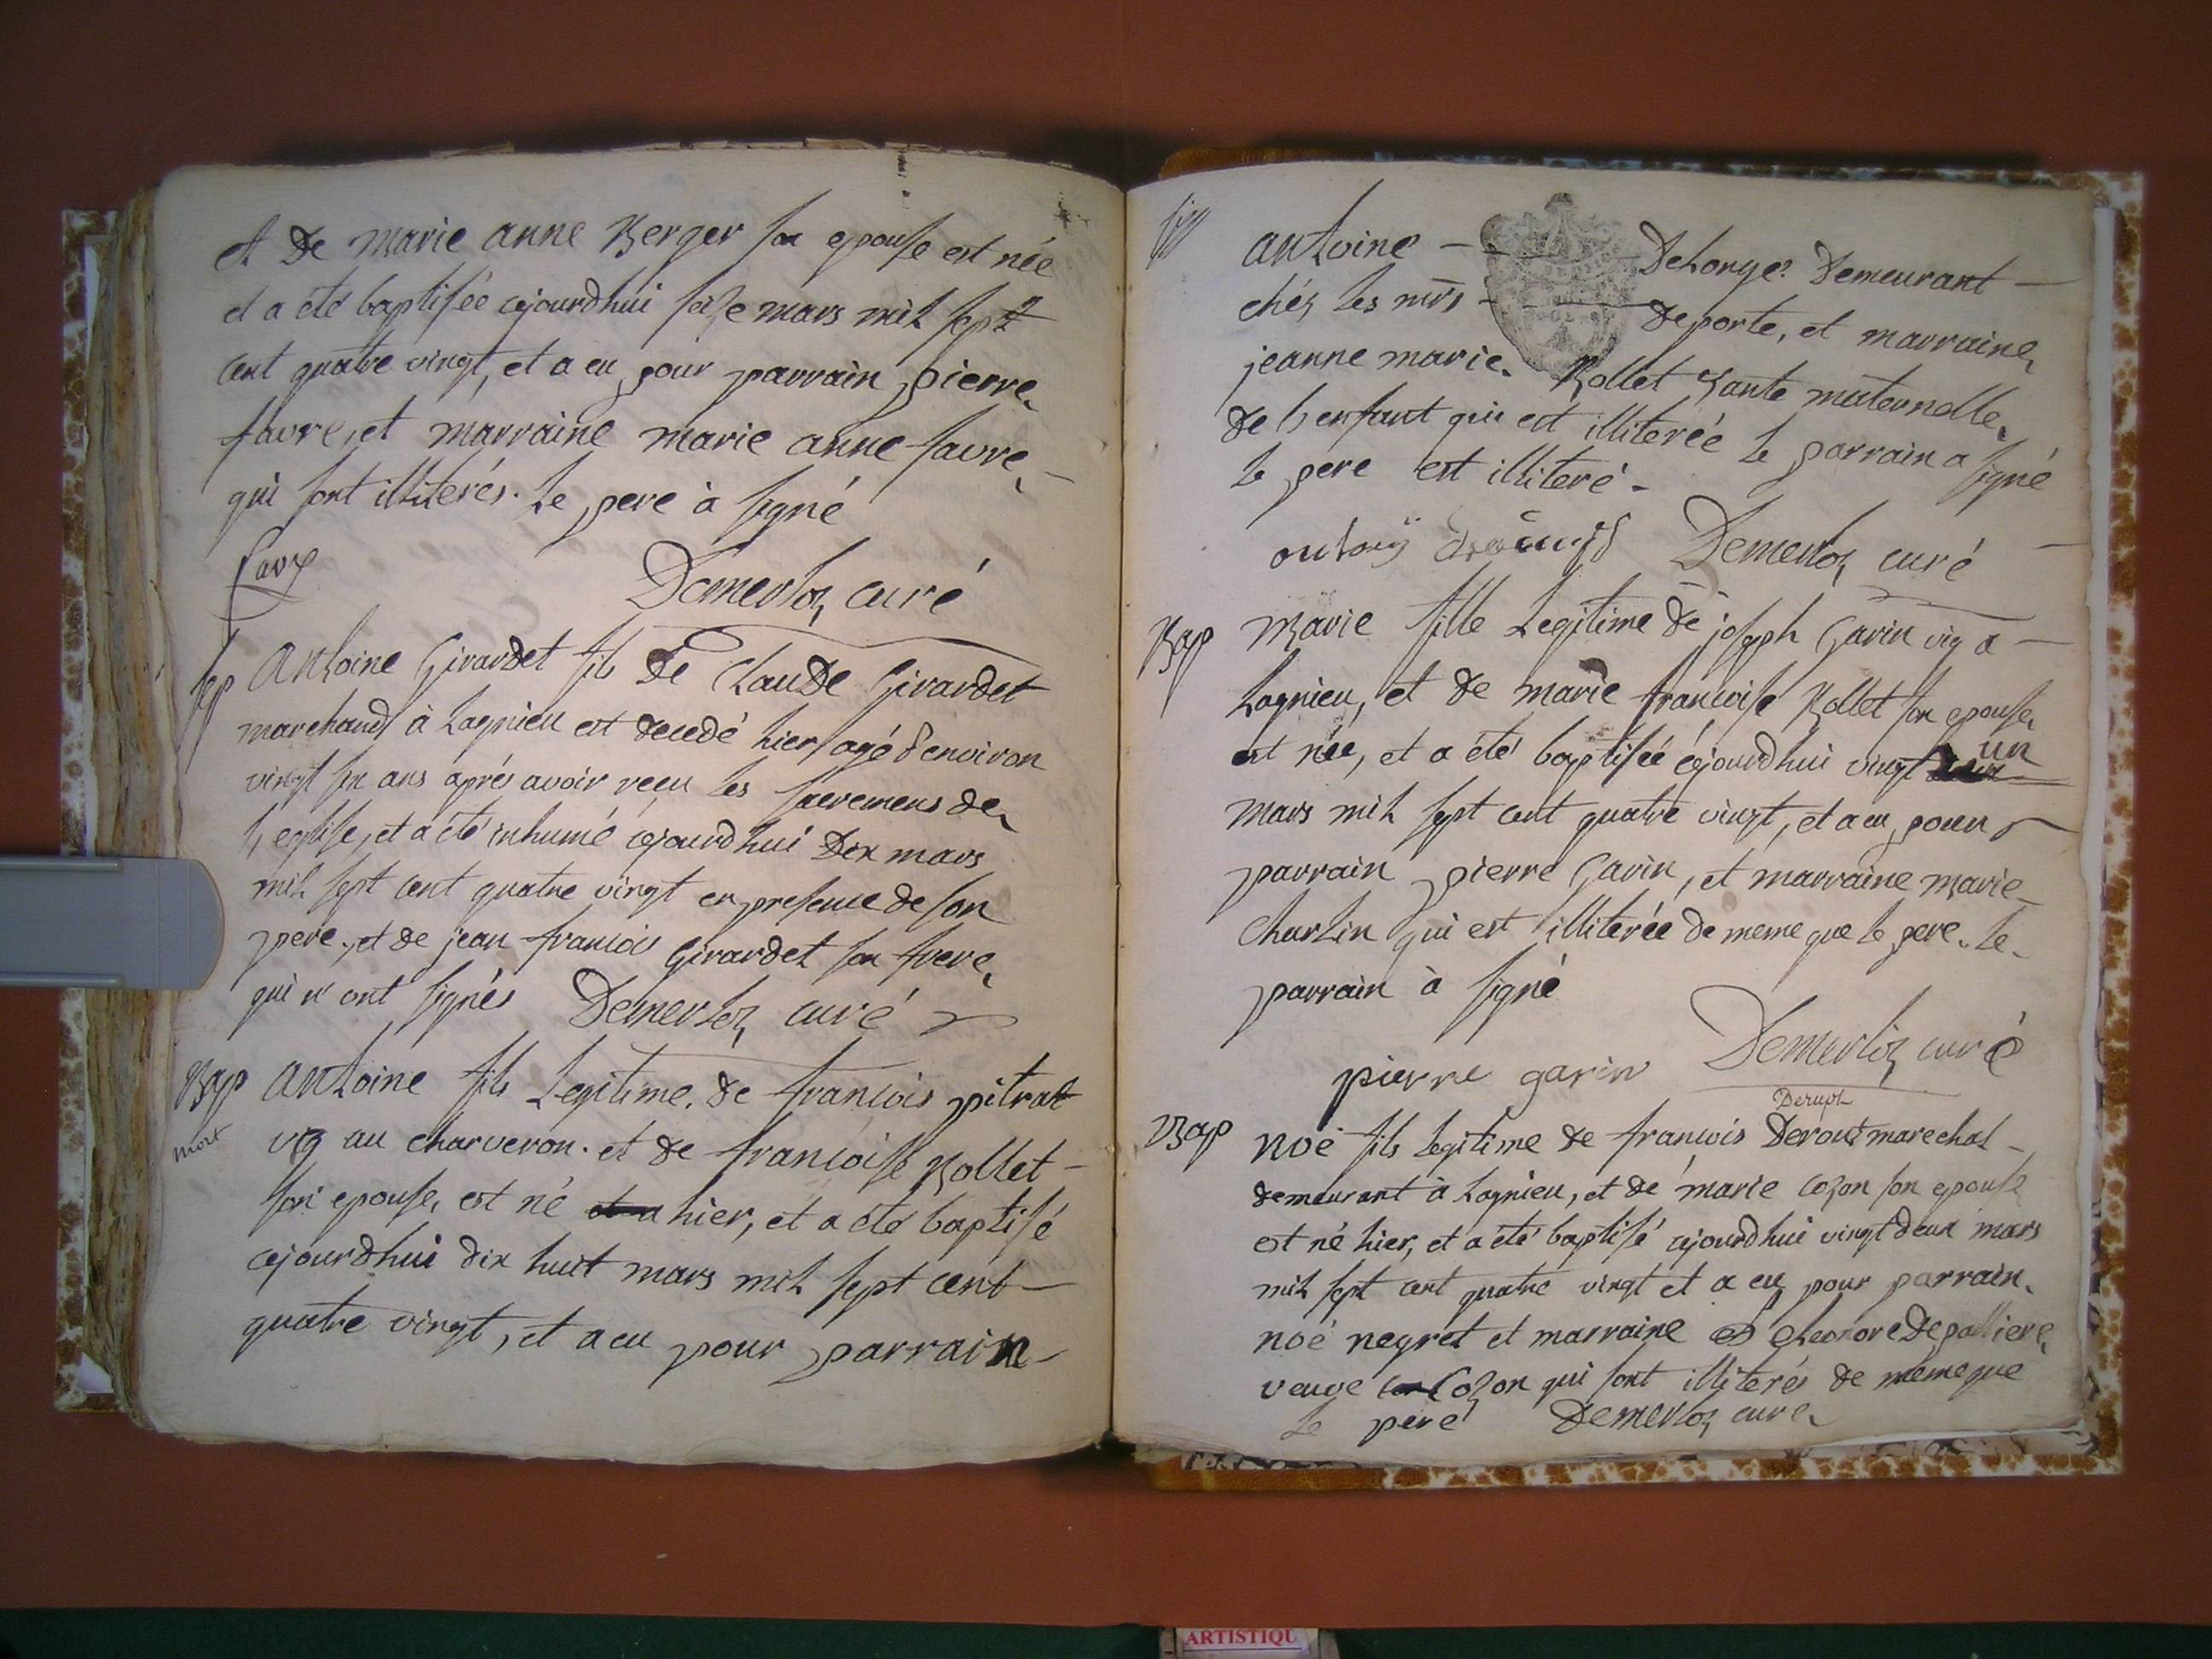 et De Marie anne Berger son epouse est née
et a été baptisée cejourdhui seise mars mil sept
cent quatre vingt, et a eu pour parrain pierre
favre, et marraine marie anne favre
qui sont illiterés. Le pere à signé
favre
Demerloz curé
sep Antoine Girardet fils De Claude Girardet
marchand à Lagnieu est decedé hier, agé d'environ
vingt six ans aprés avoir reçu les sacremens de
l'eglise, et a été inhumé cejourdhui Dix mars
mil sept cent quatre vingt en presence de son
pere, et de jean francois Girardet son frere
qui n'ont signés Demerloz curé
Bap Antoine fils Legitime de francois pitrat
mort vig au charveron. et de francoise Rollet
son epouse, est né et a hier, et a été baptisé
cejourdhui dix huit mars mil sept cent
quatre vingt, et a eu pour parrain
Antoine Delonge Demeurant
chés les mrs deporte, et marraine
jeanne marie Rollet tante maternelle
de l'enfant qui est illiterée le parrain a signé
le pere est illiteré.
Demerloz curé
Bap Marie fille Legitime de joseph Garin vig a
Lagnieu, et de marie francoise Rollet son epouse
est née, et a été baptisée cejourdhui vingt un
mars mil sept cent quatre vingt, et a eu pour
parrain pierre Garin, et marraine marie
Charlin qui est illiterée de meme que le pere. le
parrain à signé
pierre garin Demerloz curé
Derupt
Bap noé fils legitime de francois Derout marechal
demeurant à Lagnieu, et de marie Cozon son epouse
est né hier, et a été baptisé cejourdhui vingt deux mars
mil sept cent quatre vingt et a eu pour parrain
noé negret et marraine Eleonore Depalliere
veuve Cozon qui sont illiterés de meme que
le pere Demerloz curé
ARTISTIQU